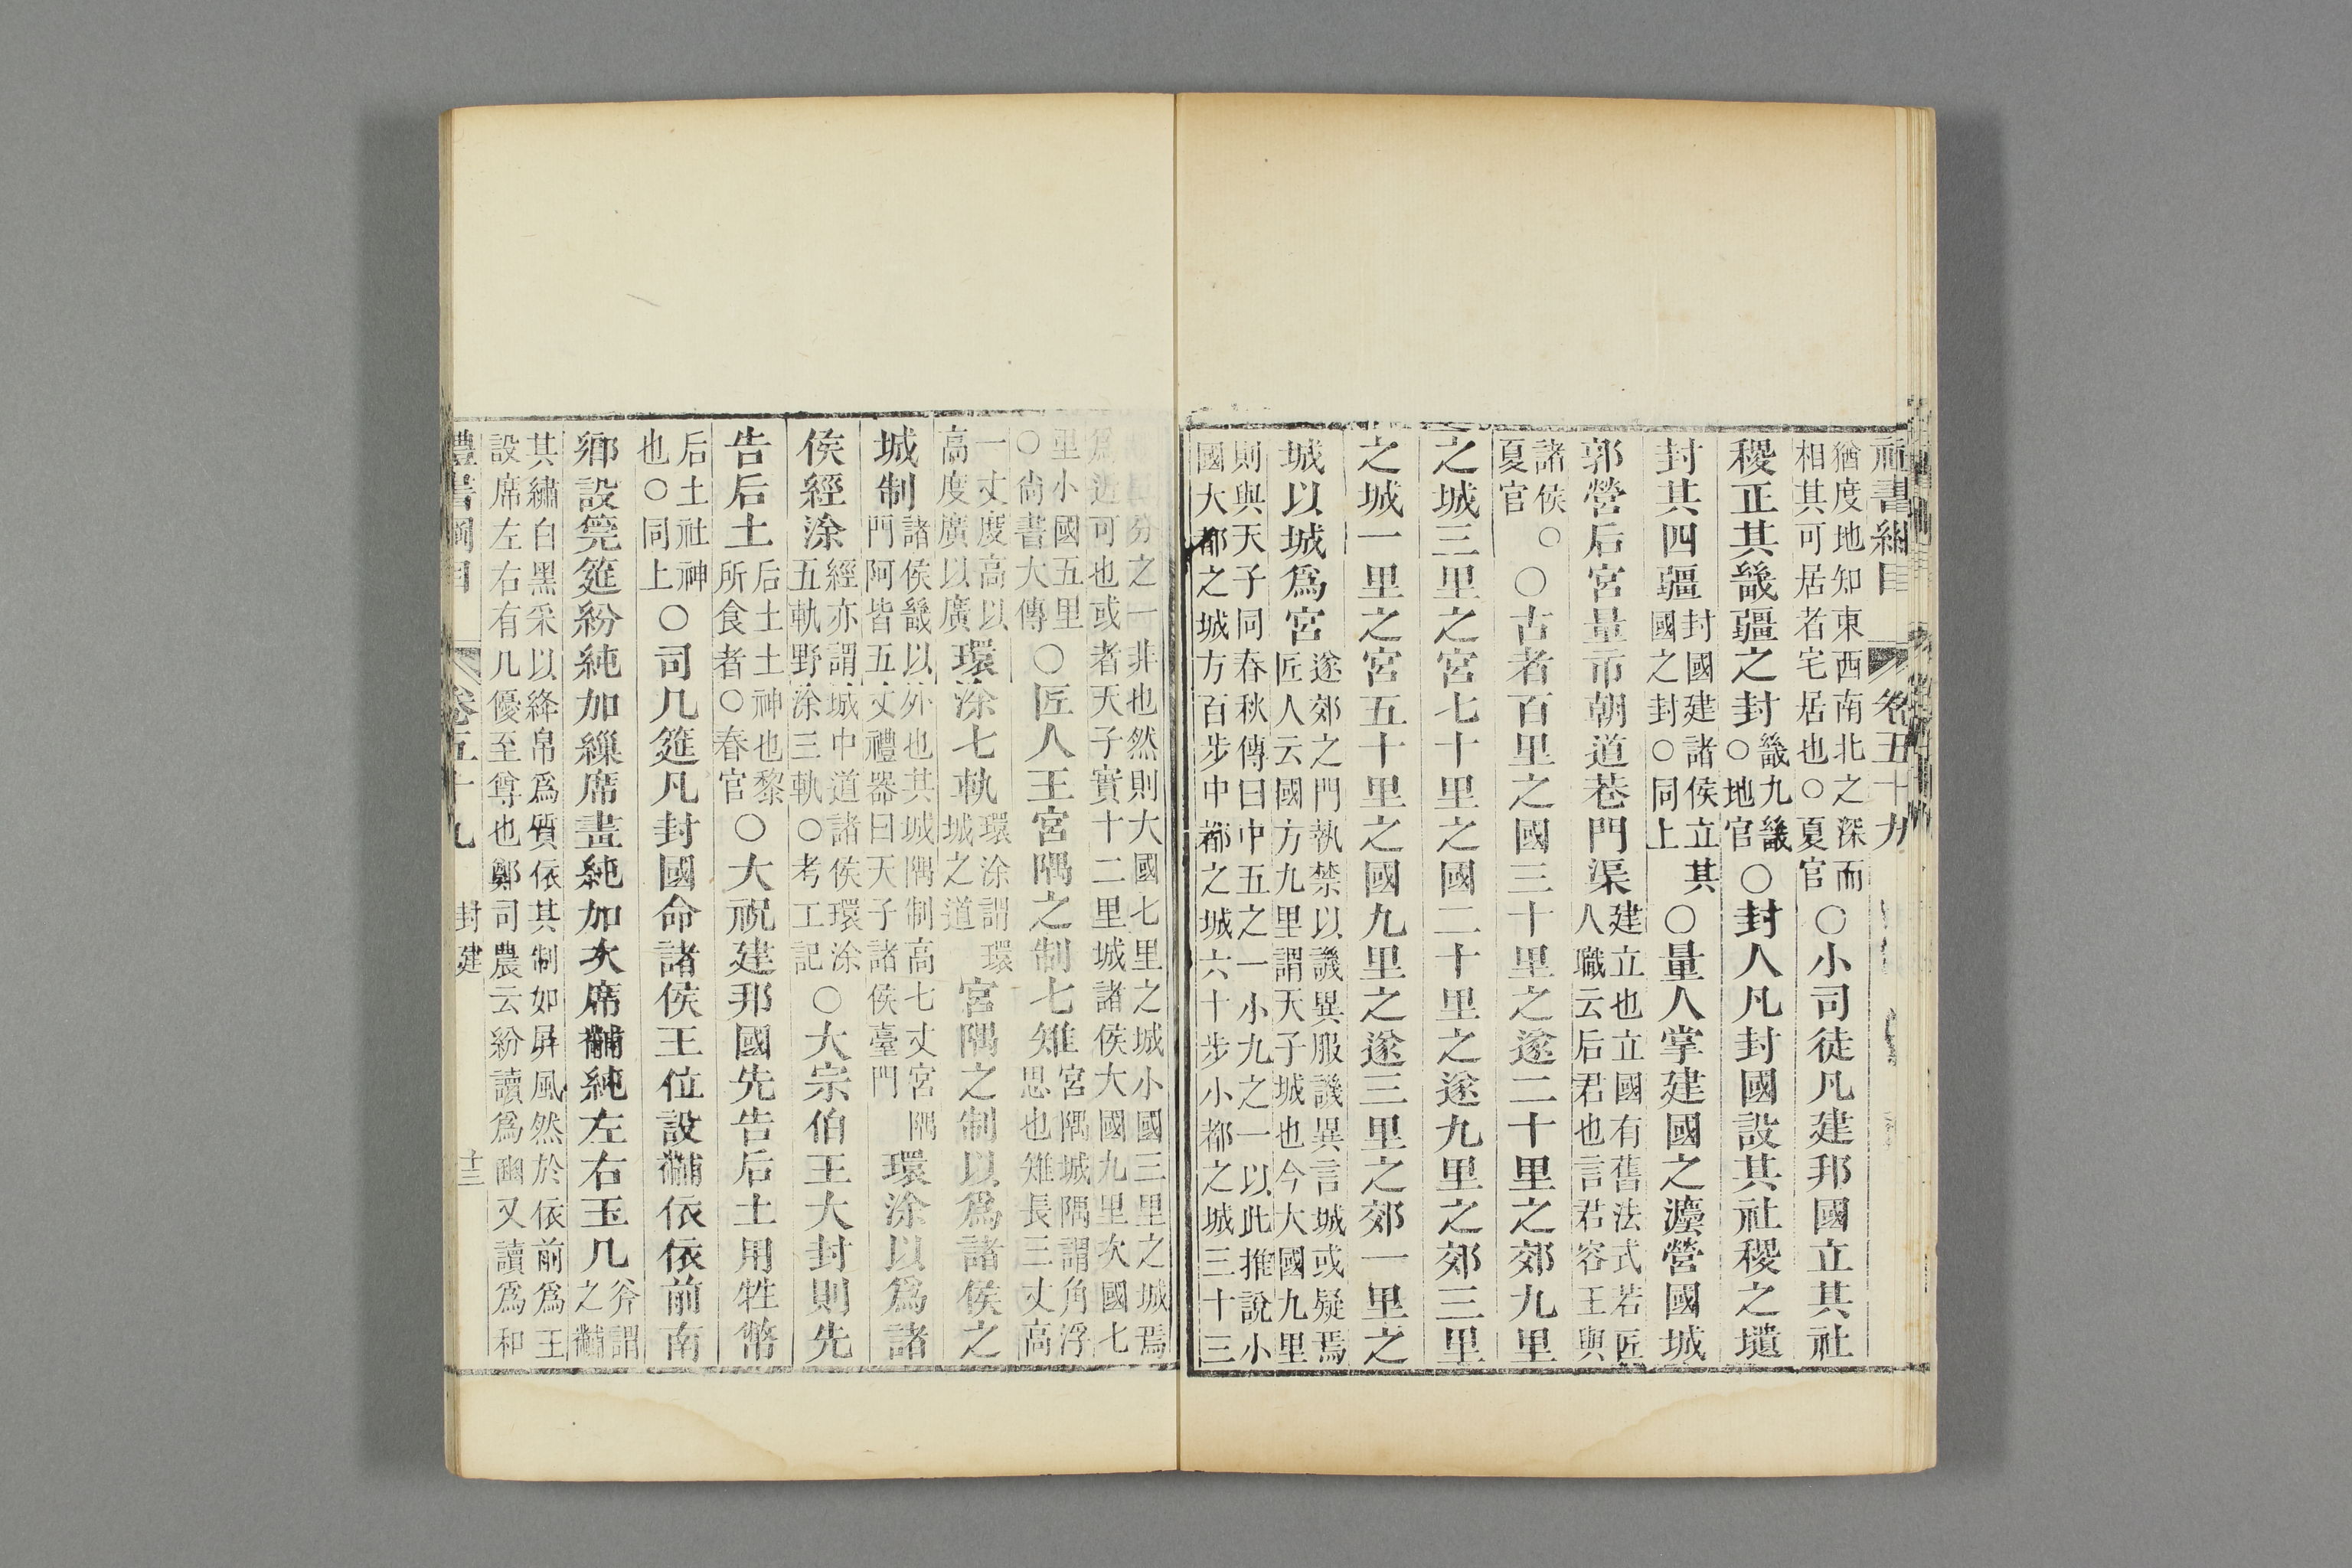 書綱目 卷五十九
猶度地知東西南北之深而
相其可居者宅居也○夏官
○小司徒凡建邦國立其社
稷正其畿疆之封畿九畿○地官○封人凡封國設其社稷之壝
封其四疆封國建諸侯立其國之封○同上○量人掌建國之灋營國城
郭營后宮量市朝道巷門渠建立也立國有舊法式若匠人職云后君也言君容王與
諸侯○夏官○古者百里之國三十里之遂二十里之郊九里
之城三里之宮七十里之國二十里之遂九里之郊三里
之城一里之宮五十里之國九里之遂三里之郊一里之
城以城爲宮遂郊之門執禁以譏異服譏異言城或疑焉匠人云國方九里謂天子城也今大國九里
則與天子同春秋傳曰中五之一小九之一以此推說小
國大都之城方百步中都之城六十步小都之城三十三
分之一非也然則大國七里之城小國三里之城焉
爲近可也或者天子實十二里城諸侯大國九里次國七
里小國五里○尚書大傳○匠人王宮隅之制七雉宮隅城隅謂角浮思也雉長三丈高
一丈度高以高度廣以廣環涂七軌環涂謂環城之道宮隅之制以爲諸侯之
城制諸侯畿以外也其城隅制高七丈宮隅門阿皆五丈禮器曰天子諸侯臺門環涂以爲諸
侯經涂經亦謂城中道諸侯環涂五軌野涂三軌○考工記○大宗伯王大封則先
告后土后土土神也黎所食者○春官○大祝建邦國先告后土用牲幣
后土社神也○同上○司几筵凡封國命諸侯王位設黼依依前南
鄉設筦筵紛純加繅席畫純加次席黼純左右玉几斧謂之黼
其繡白黑采以絳帛爲質依其制如屛風然於依前爲王
設席左右有几優至尊也鄭司農云紛讀爲豳又讀爲和
禮書綱目 卷五十九 封建 十三